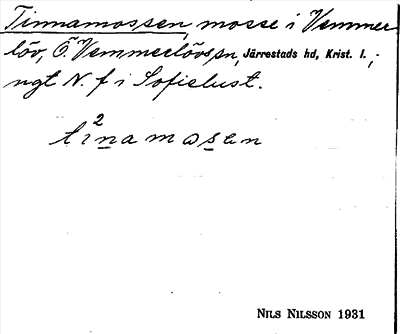 Tinnamossen, mosse i Vemmer
löv, Ö. Vemmerlövs sn, Järrestads hd, Krist. l.,;
ngt N. f i Sofielust.
ti²namosen
NILS NILSSON 1931